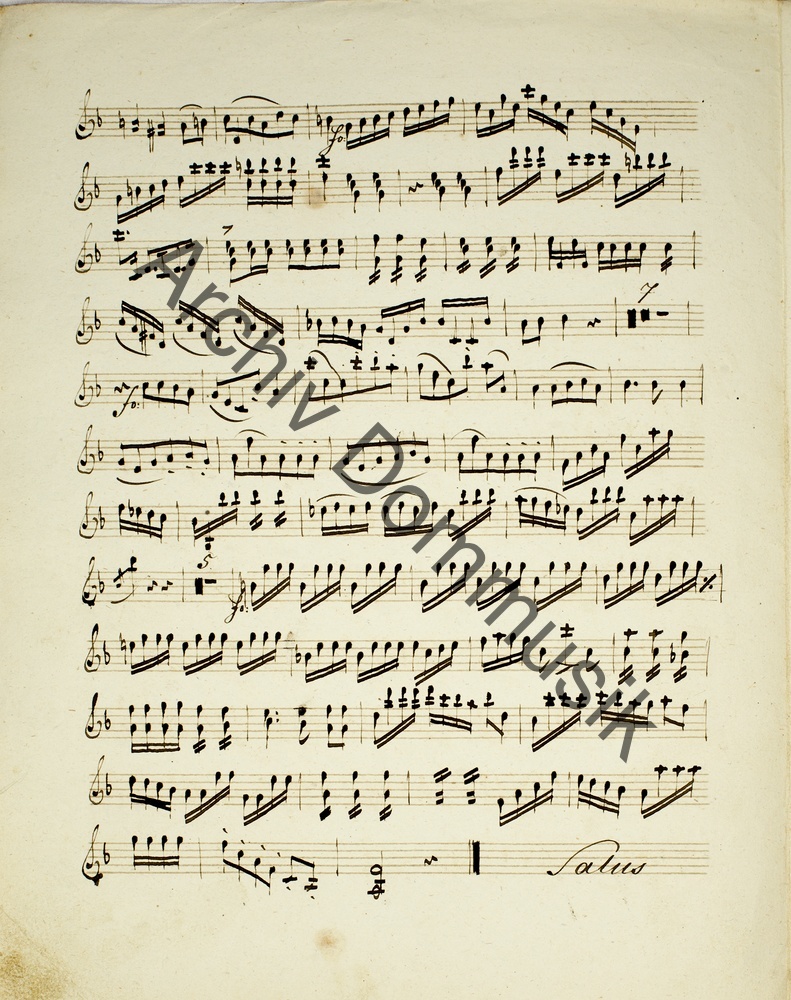 fo:
7
7
fo:
5
fo:
Salus
Archiv Dommusik